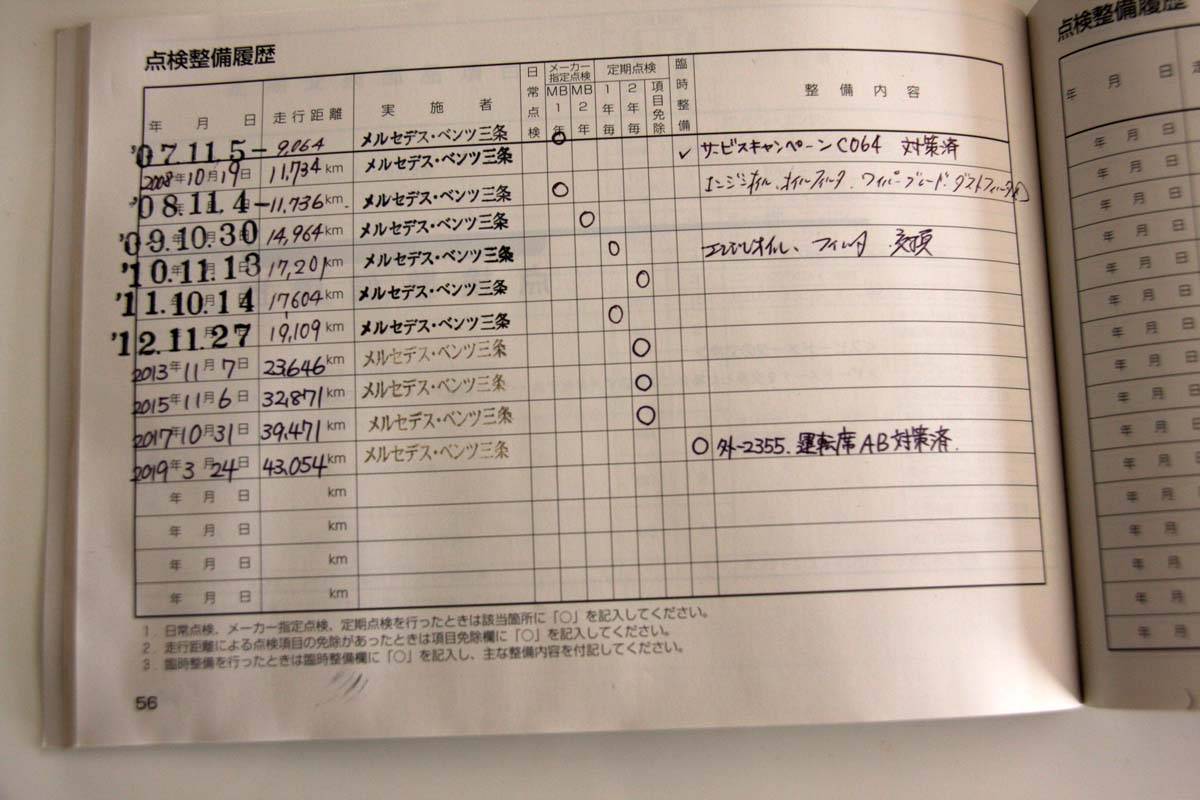 点検整備履歴
点検整備履歴
年 月 日 走行距離 実施者 日常点検 メーカー指定点検 MB1年 MB2年 定期点検 1年毎 2年毎 項目免除 臨時整備 整備内容
'07.11.5- 9,064 メルセデス・ベンツ三条 ○
2008年10月19日 11,734km メルセデス・ベンツ三条 ✓ サービスキャンペーンC064 対策済
'08.11.4- 11,736km メルセデス・ベンツ三条 ○ エンジンオイル、オイルフィルタ、ワイパーブレード、ダストフィルタ
'09.10.30 14,964km メルセデス・ベンツ三条 ○
'10.11.13 17,201km メルセデス・ベンツ三条 ○ エンジンオイル、フィルタ 交換
'11.10.14 17604km メルセデス・ベンツ三条 ○
'12.11.27 19,109km メルセデス・ベンツ三条 ○
2013年11月7日 23,646km メルセデス・ベンツ三条 ○
2015年11月6日 32,871km メルセデス・ベンツ三条 ○
2017年10月31日 39,471km メルセデス・ベンツ三条 ○
2019年3月24日 43,054km メルセデス・ベンツ三条 ○ 外-2355.運転席AB対策済.
年 月 日 km
年 月 日 km
年 月 日 km
年 月 日 km
1. 日常点検、メーカー指定点検、定期点検を行ったときは該当箇所に「○」を記入してください。
2. 走行距離による点検項目の免除があったときは項目免除欄に「○」を記入してください。
3. 臨時整備を行ったときは臨時整備欄に「○」を記入し、主な整備内容を付記してください。
56
年 月 日
年 月 日
年 月 日
年 月 日
年 月 日
年 月 日
年 月 日
年 月 日
年 月 日
年 月 日
年 月 日
年 月 日
年 月 日
年 月 日
年 月
年 月